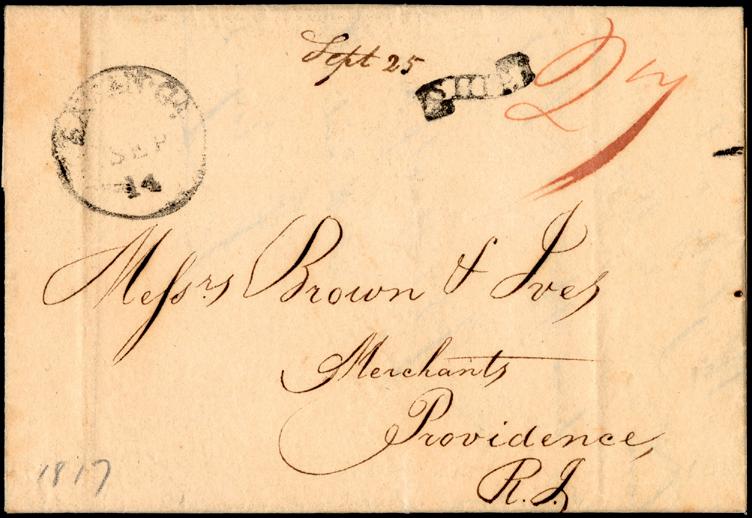 Sept 25
SHIP
27
SEP
14
Messrs Brown & Ives
Merchants
Providence,
R. I.
1817